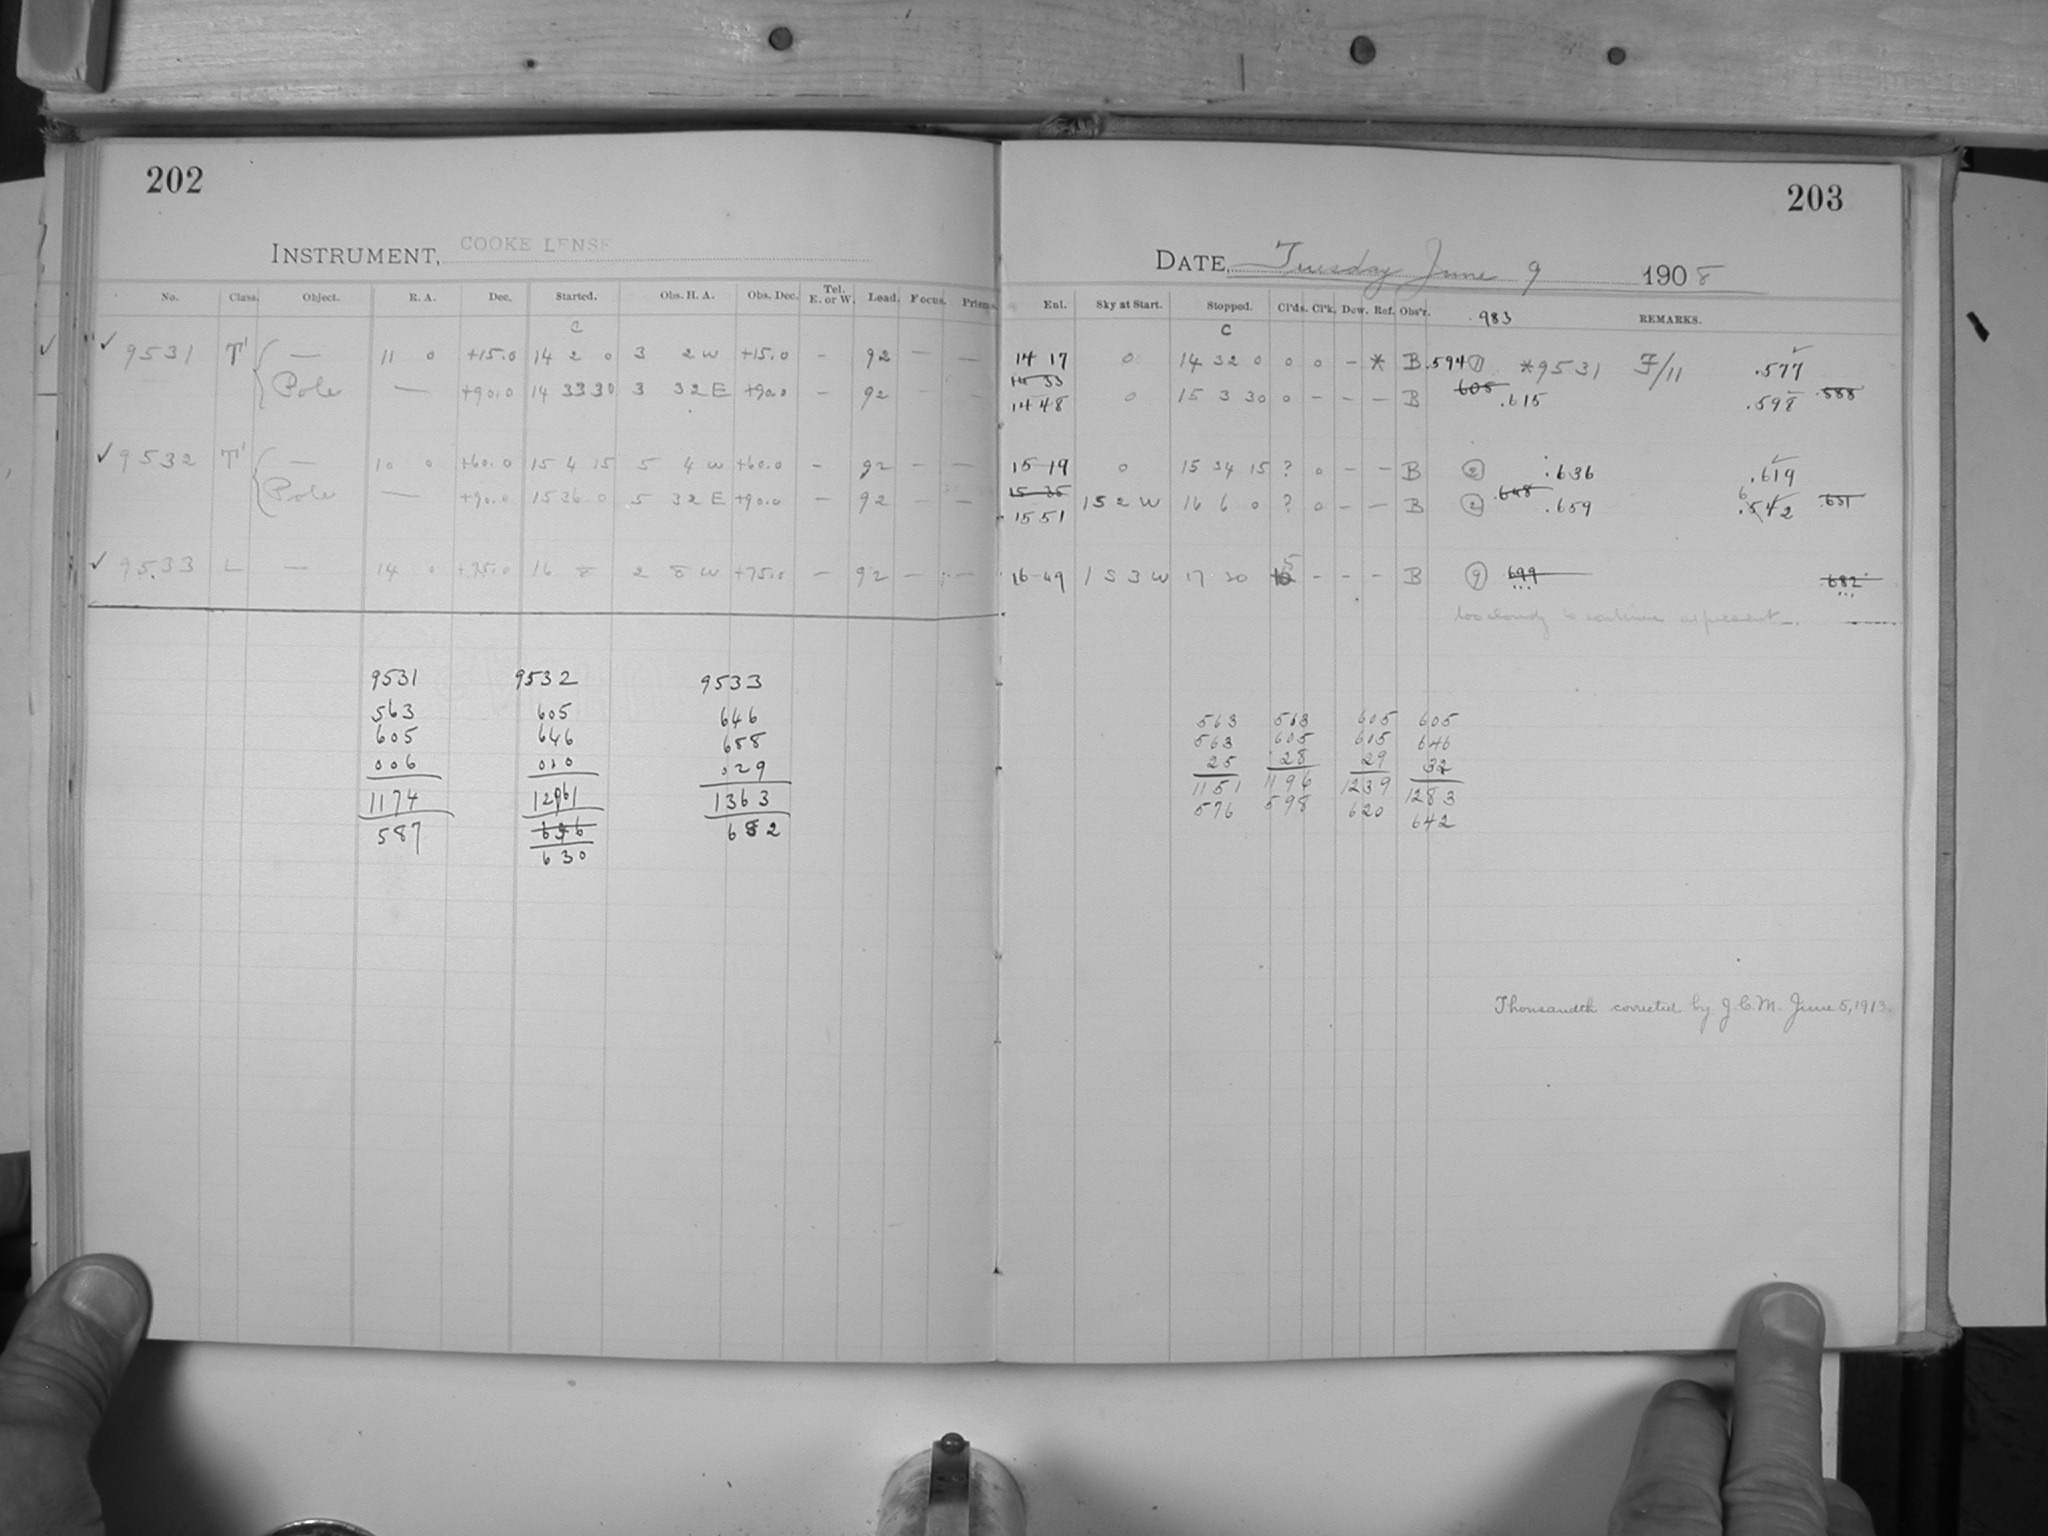 202
INSTRUMENT, COOKE LENSE
No. Class. Object. R. A. Dec. Started. Obs. H. A. Obs. Dec. Tel. E. or W. Load. Focus. Prisms.
C
✓ 9531 T' — 11 0 +15.0 14 2 0 3 2 W +15.0 - 92 — —
Pole — +90.0 14 33 30 3 32 E +90.0 - 92 - -
✓ 9532 T' — 10 0 +60.0 15 4 15 5 4 W +60.0 - 92 - —
Pole — +90.0 15 36 0 5 32 E +90.0 - 92 - —
✓ 9533 L — 14 0 +75.0 16 8 2 8 W +75.0 — 92 — —
9531 9532 9533
563 605 646
605 646 688
006 010 029
1174 1261 1363
587 636 682
630
203
DATE, Tuesday June 9 1908
Enl. Sky at Start. Stopped. Cl'ds. Cl'k. Dew. Ref. Obs'r. .983 REMARKS.
C
14 17 0 14 32 0 0 0 - * B .594 ① *9531 F/11 .577
14 33
14 48 0 15 3 30 0 - - - B 605 .615 .598 .588
15 19 0 15 34 15 ? 0 - - B ② .636 .619
15 35
15 51 1 S 2 W 16 6 0 ? 0 - - B ② .648 .659 .642 .631
16 49 1 S 3 W 17 30 5 - - - B ⑨ 699 .682
too cloudy to continue at present.
563 563 605 605
563 605 605 646
25 28 29 32
1151 1196 1239 1283
576 598 620 642
Thousandth corrected by J.C.M. June 5, 1913.